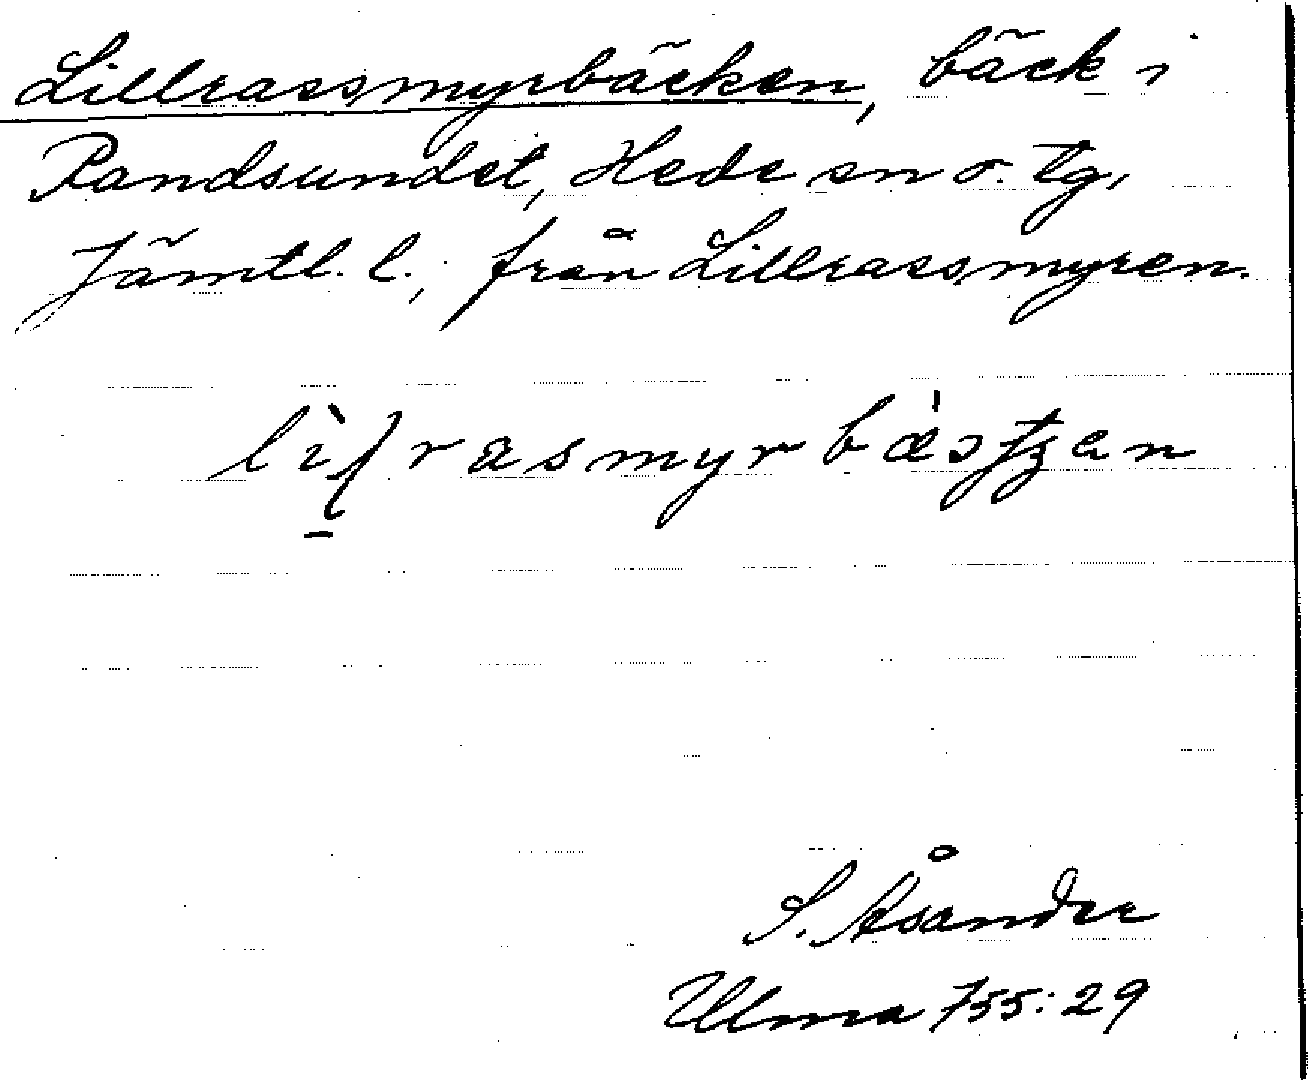 Lillrassmyrbäcken, bäck i
Randsundet, Hede sn o. tg,
Jämtl. l., från Lillrassmyren.
S. Åsander
Ulma 755:29